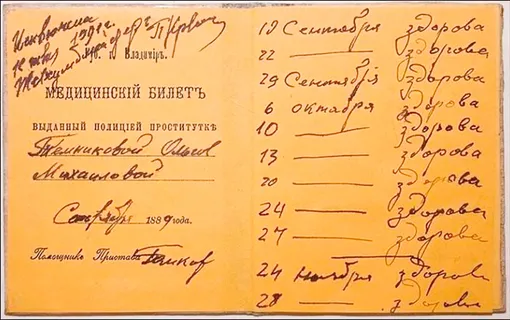 Исключена
1890 г.
го. г. Владиміръ.
МЕДИЦИНСКІЙ БИЛЕТЪ
ВЫДАННЫЙ ПОЛИЦІЕЙ ПРОСТИТУТКѢ
Темниковой Ольгѣ
Михаиловой
Сентября 1889 года.
Помощникъ Пристава
19 Сентября здорова
22 — здорова
29 Сентября здорова
6 Октября здорова
10 — здорова
13 — здорова
20 — здорова
24 — здорова
27 — здорова
24 Ноября здорова
28 — здорова